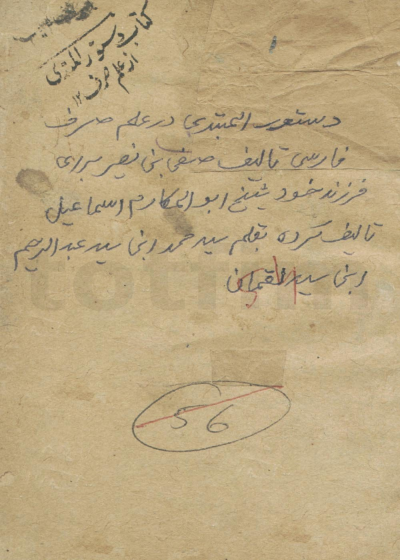 کتاب دستور المبتدی
از علم صرف ۱۲
دستور المبتدی در علم صرف
فارسی تالیف صفی بن نصیر برای
فرزند خود شیخ ابو المکارم اسماعیل
تالیف کرده بقلم سید محمد ابن سید عبد الرحیم
ابن سید لقمان
56